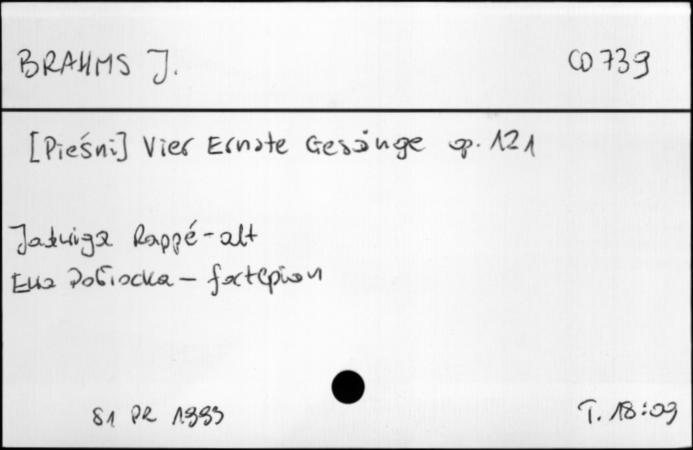 BRAHMS J. CD 739
[Pieśni] Vier Ernste Gesänge op. 121
Jadwiga Rappé - alt
Ewa Pobłocka - fortepian
S1 PR 1993 T. 18:09